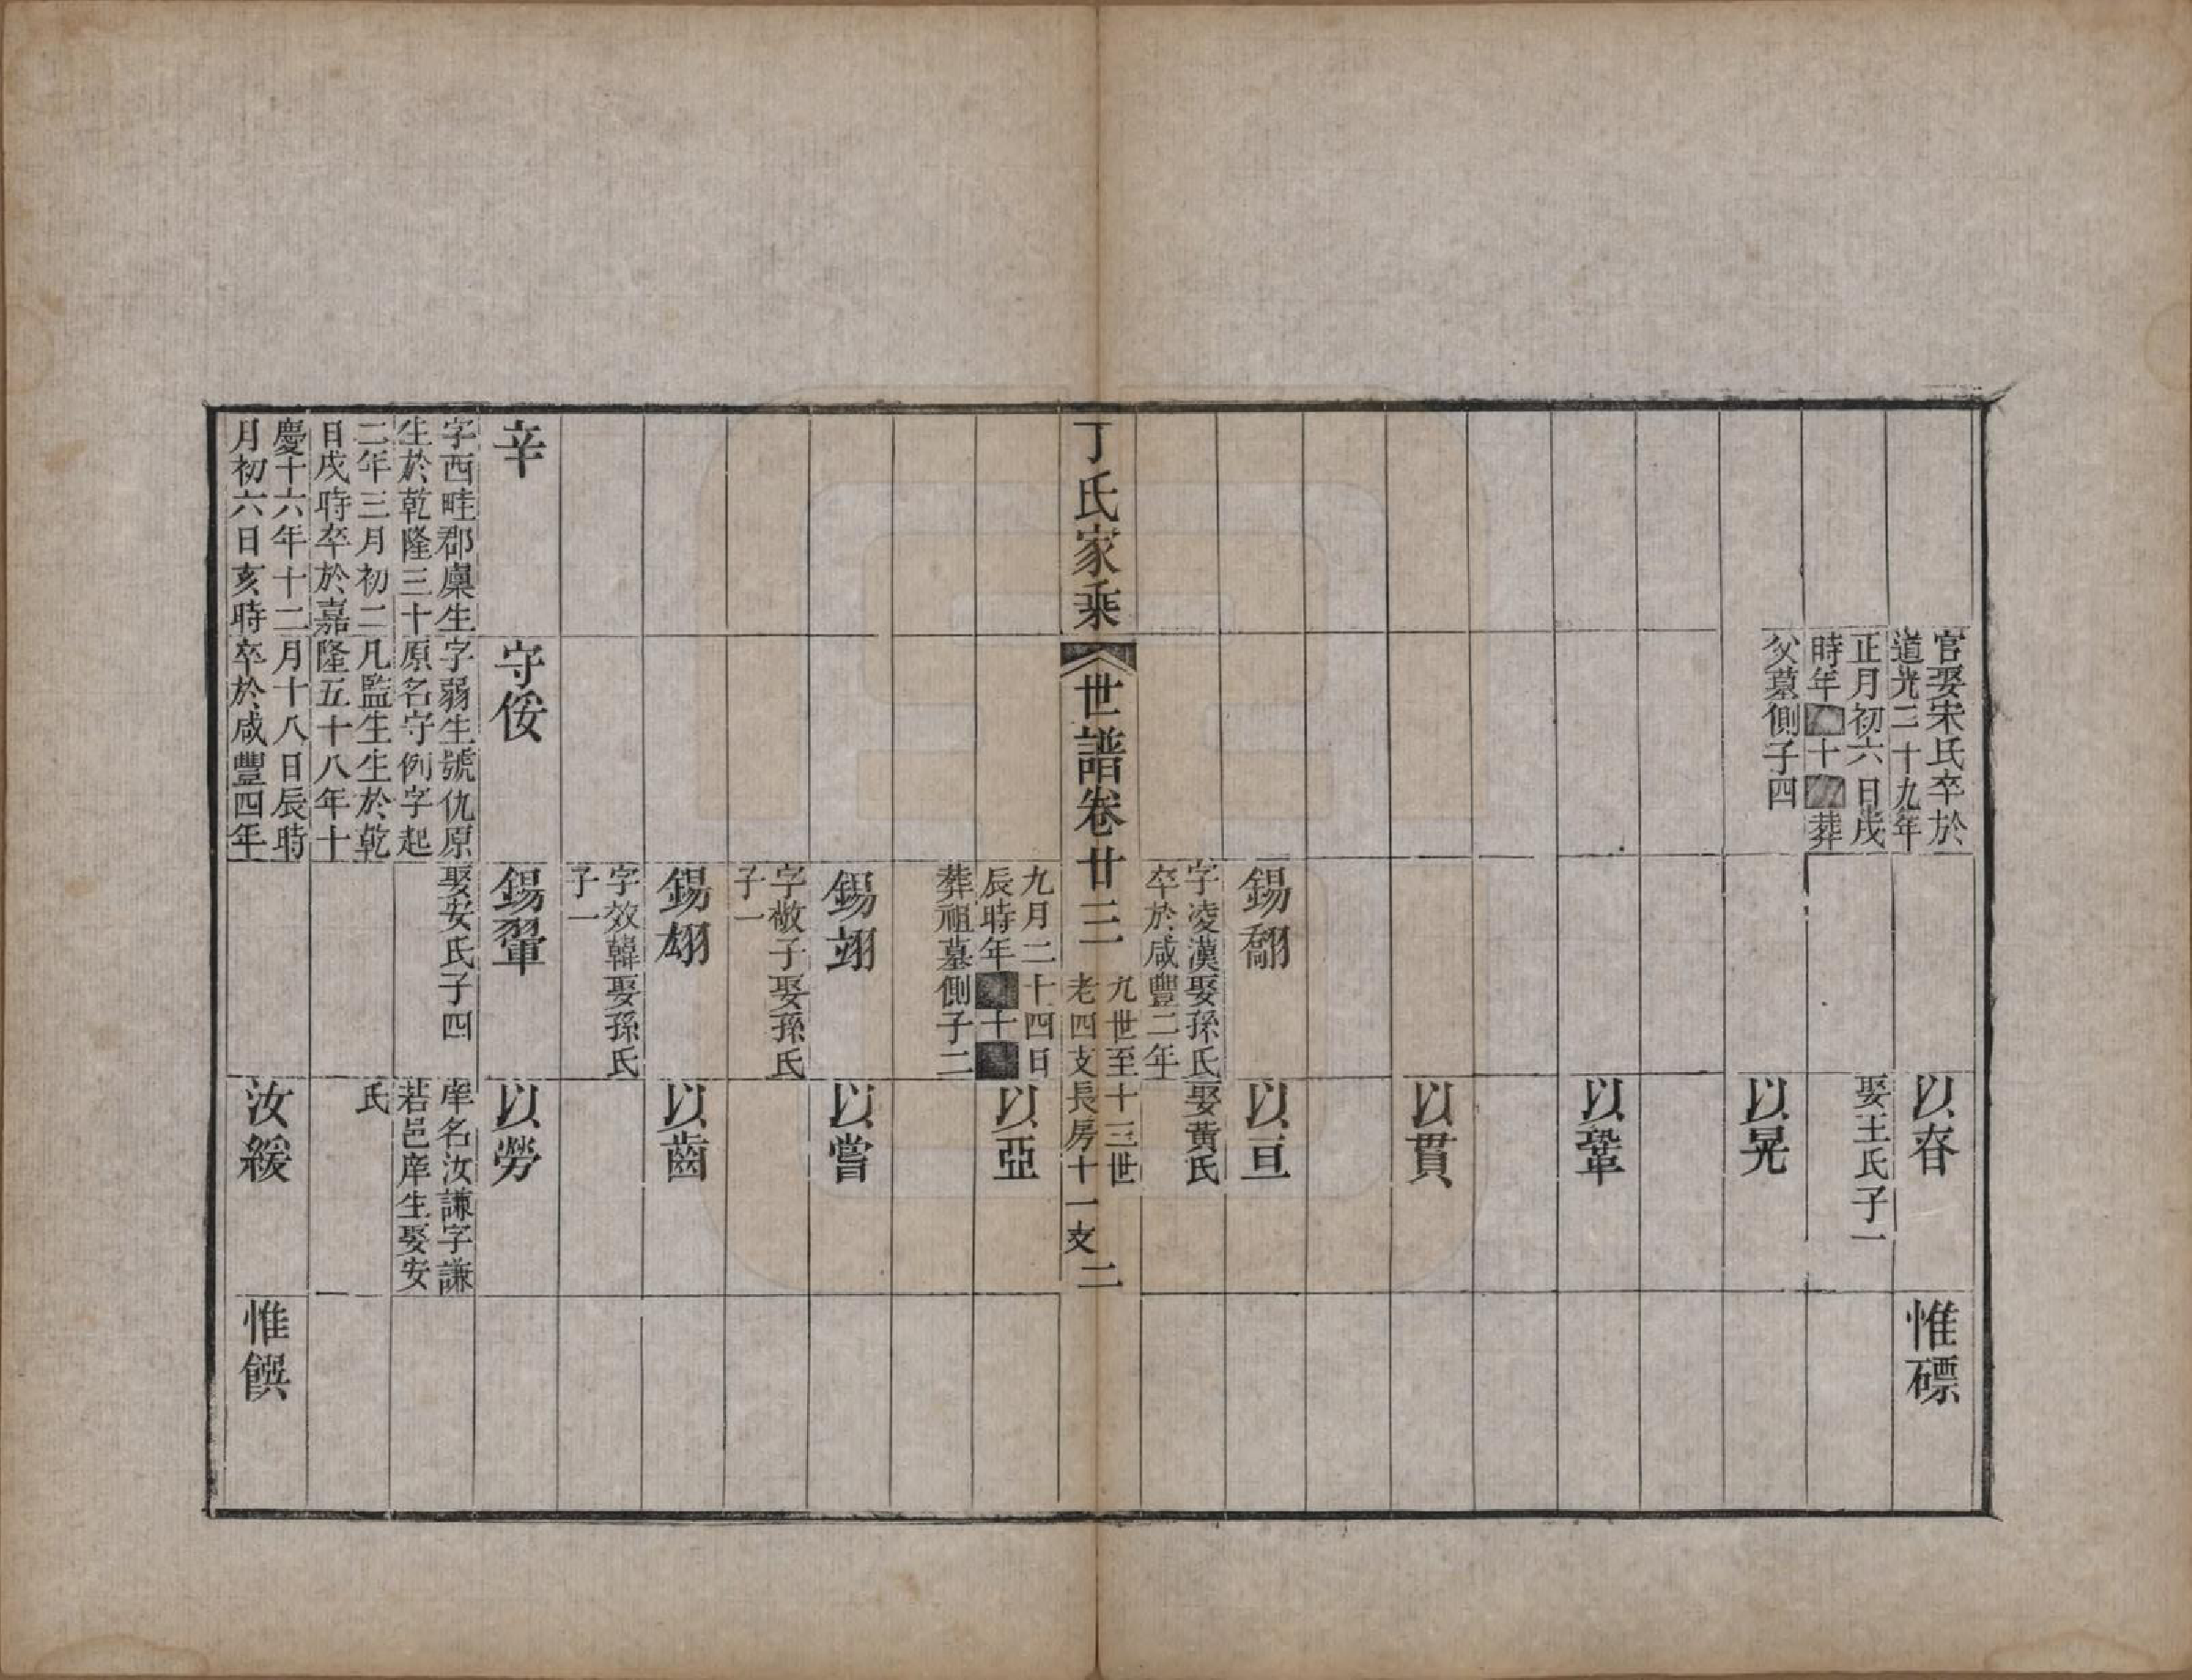 官娶宋氏卒於
道光二十九年
正月初六日戌
時年十葬
父墓側子四
以春
娶王氏子一
惟磦
以晃
以鞏
以貫
錫鷸
字凌漢娶孫氏
卒於咸豐二年
以亘
娶黃氏
丁氏家乘
世譜卷廿三
九世至十三世
老四支長房十一支
二
九月二十四日
辰時年十
葬祖墓側子二
以亞
錫翊
字敝子娶孫氏
子一
以嘗
錫翃
字效韓娶孫氏
子一
以齒
辛
字西畦郡廩生
生於乾隆三十
二年三月初二
日戌時卒於嘉
慶十六年十二
月初六日亥時
守倭
字弱生號仇原
原名守例字起
凡監生生於乾
隆五十八年十
月十八日辰時
卒於咸豐四年
錫翬
娶安氏子四
以勞
庠名汝謙字謙
若邑庠生娶安
氏
汝緩
惟饌